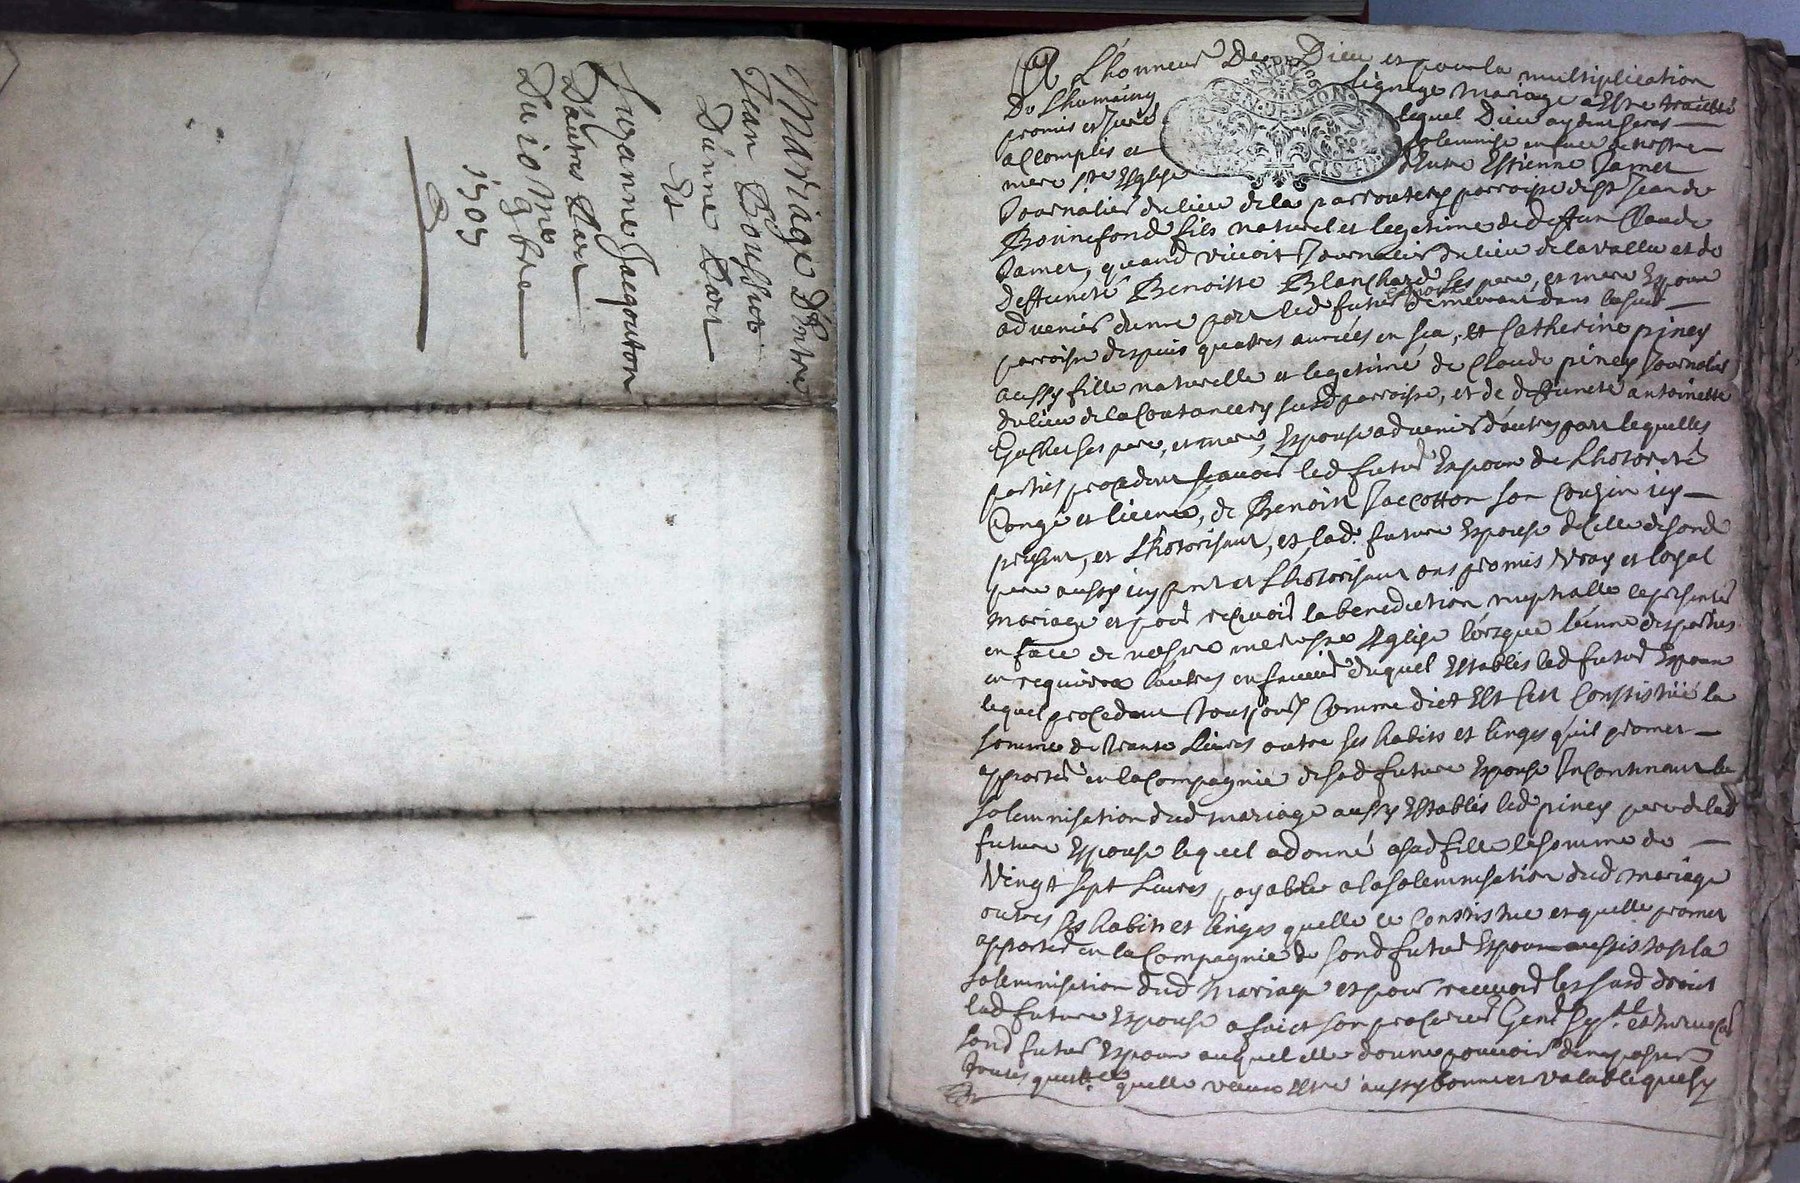 Mariage D'Entre
Jean Boussier
D'unne Part
Et
Suzanne Jacquuton
D'autres Part
Du 10 Me
9bre
1709
A L'honneur De Dieu et pour la multiplication
De L'humaing lignage mariage a Estre traitté
promis et Juré lequel Dieu aydent seras
accomplis et solemnise en face de nostre
mere Ste Esglise Entre Estienne Jamet
Journalier du lieu de la parroisse de St Jean de
Bonnefond fils naturel et legetime de deffun Claude
Jamet, quand vivoit Journalier du lieu de lavalla et de
deffuncte Benoitte Blanchard ses pere, et mere Espoux
advenir dunne part led futur demeurant dans lasusd
parroisse despuis quatres années en sca, et Catherine piney
aussy fille naturelle et legetime de Claude piney Journalier
du lieu de la Coutancery susd parroisse, et de deffuncte antoinette
ses pere, et mere, Espouse advenir d'autres part lequelles
parties procedant scavoir led futur Espoux de Lhotorité
Congé et licence, de Benoist Jaccotton son Cousin icy
present, et Lhotorisant, et lad. future Espouse de Celle desond
pere aussy icy present et Lhotorisant ont promis Vray et loyal
mariage et pour recevoir la benediction nuptialle se presenter
en face de nostre mere ste Esglise lorsque l'unne des parties
en requirera lautres en faveur duquel Establis led futur Espoux
lequel procedant tousjours Comme dict Est sest Constistüé la
somme de trante Livres outre ses habits et linges quil promet
apporter en la Compagnie de sad future Espouse Incontinant la
solemnisation dud mariage aussy Establis led piney pere de lad
future Espouse lequel a donné a sad fille la somme de
Vingt sept Livres payable a la solemnisation dud mariage
outres ses habits et linges quelle se Constistue et quelle promet
apporter en la Compagnie de sond futur Espoux aussistost la
solemnisation dud Mariage et pour recevoir les susd droict
lad future Espouse a faict son procureur Genl Spal et Irrevocable
sond futur Espoux auquel elle donne pouvoir den passer
toutes quittce quelle veux Estre aussy bonne et valable que sy